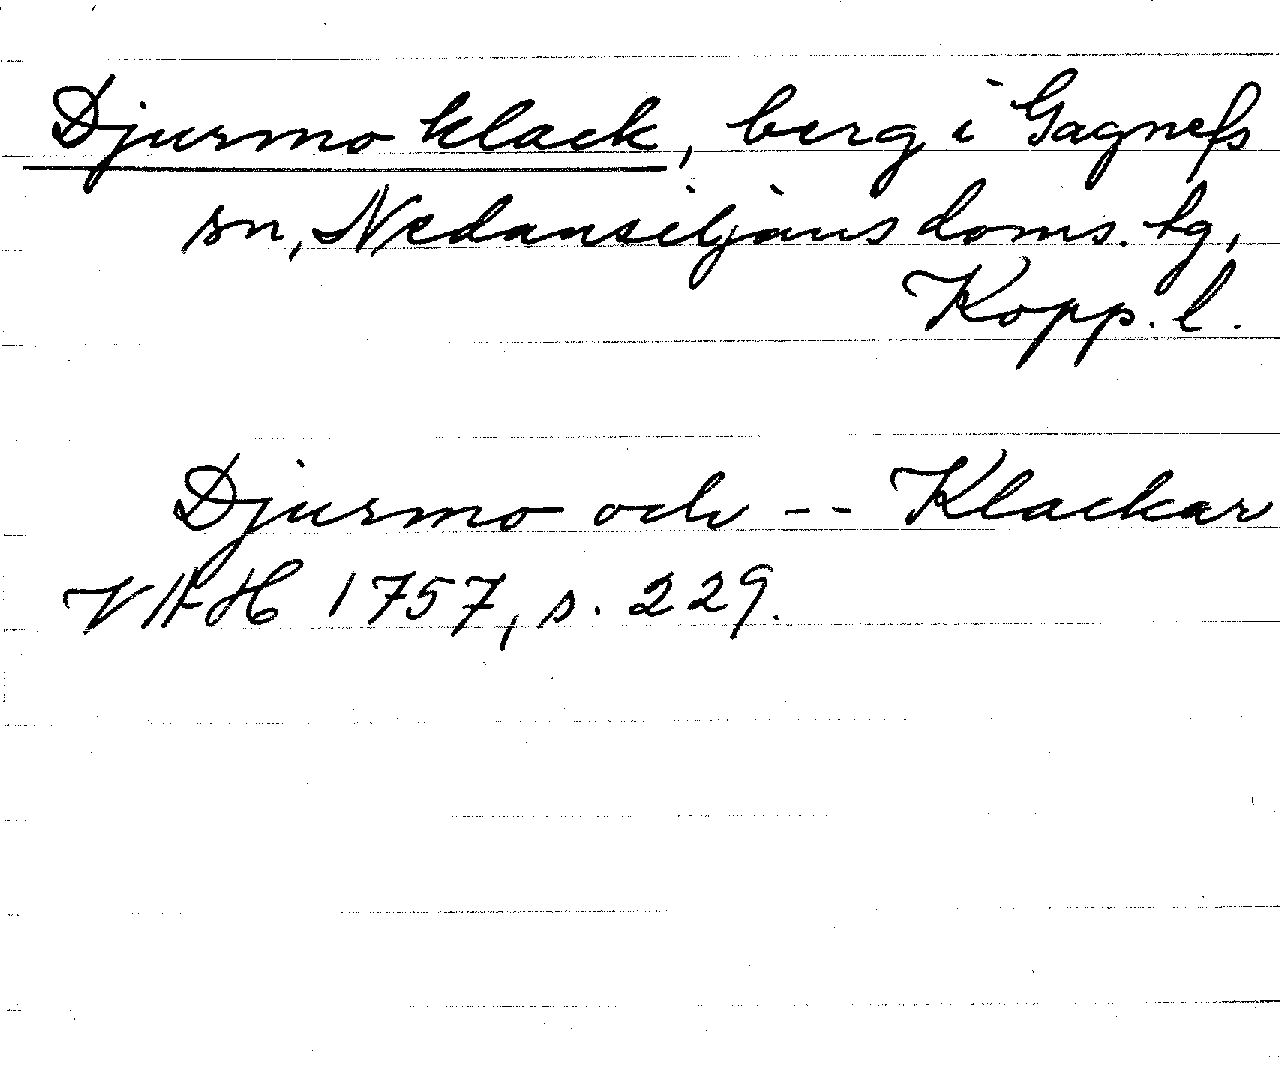 Djurmo klack, berg i Gagnefs
sn, Nedansiljans doms. tg,
Kopp. l.
Djurmo och -- Klackar
VAH 1757, s. 229.